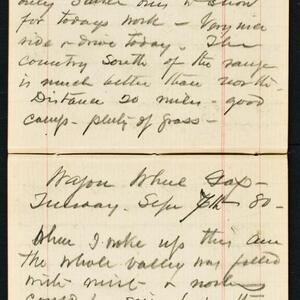 for todays work - Very nice
ride & drive today. The
country South of the range
is much better than north-
Distance 20 miles - good
camp - plenty of grass -
Wagon Wheel Gap -
Tuesday. Sept 7th 80-
When I woke up this am
the whole valley was filled
with mist &